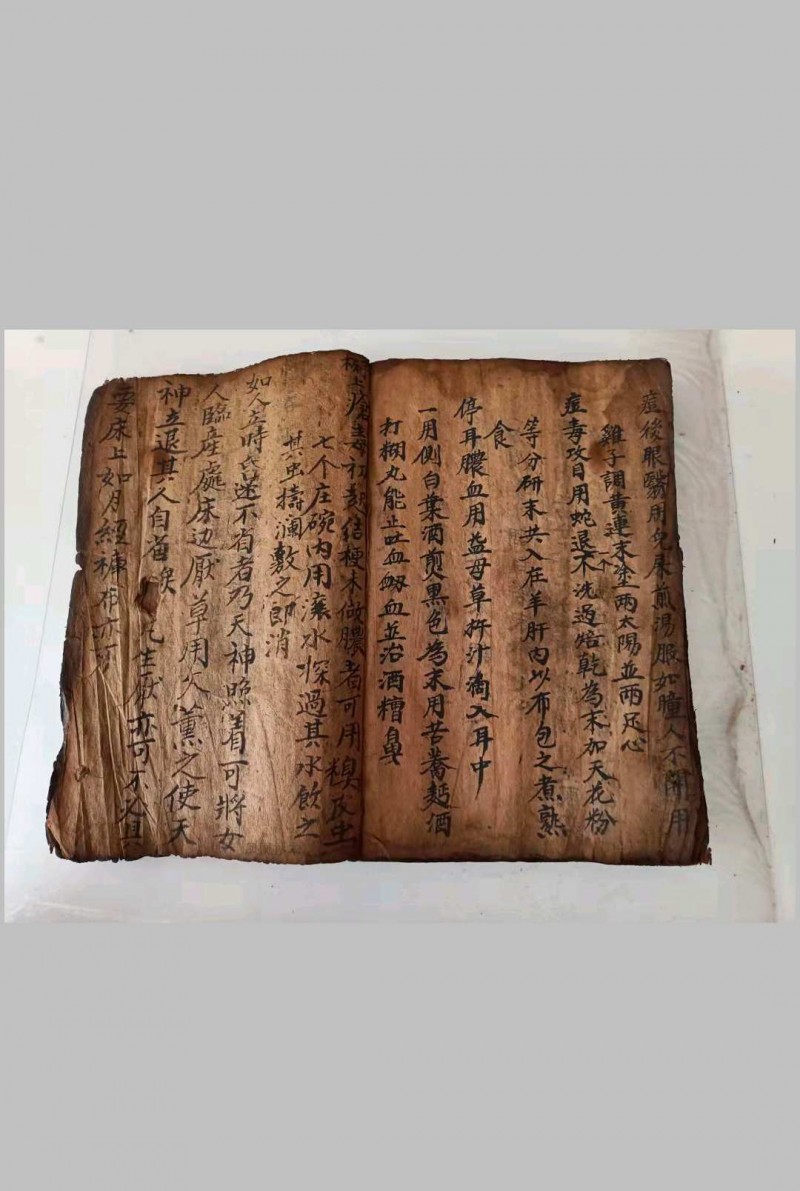 痘後眼翳用兔屎煎湯服如瞳人不開用
雞子調黃連末塗兩太陽並兩足心
痘毒攻目用蛇退不洗過焙乾為末加天花粉
等分研末共入在羊肝內以布包之煮熟
食
停耳膿血用益母草杵汁滴入耳中
一用側白葉酒煎黑色為末用苦蕎麵酒
打糊丸能止吐血衂血並治酒糟鼻
瘡毒初起結梗未做膿者可用糗瓜虫
七个庄碗內用滾水𤆵過其水飲之
其虫擣瀾敷之即消
如人左時昏迷不省者乃天神照着可將女
人臨產處床边厭草用火薰之使天
神立退其人自省
生厭亦可不必具
要床上如月經褲布亦可